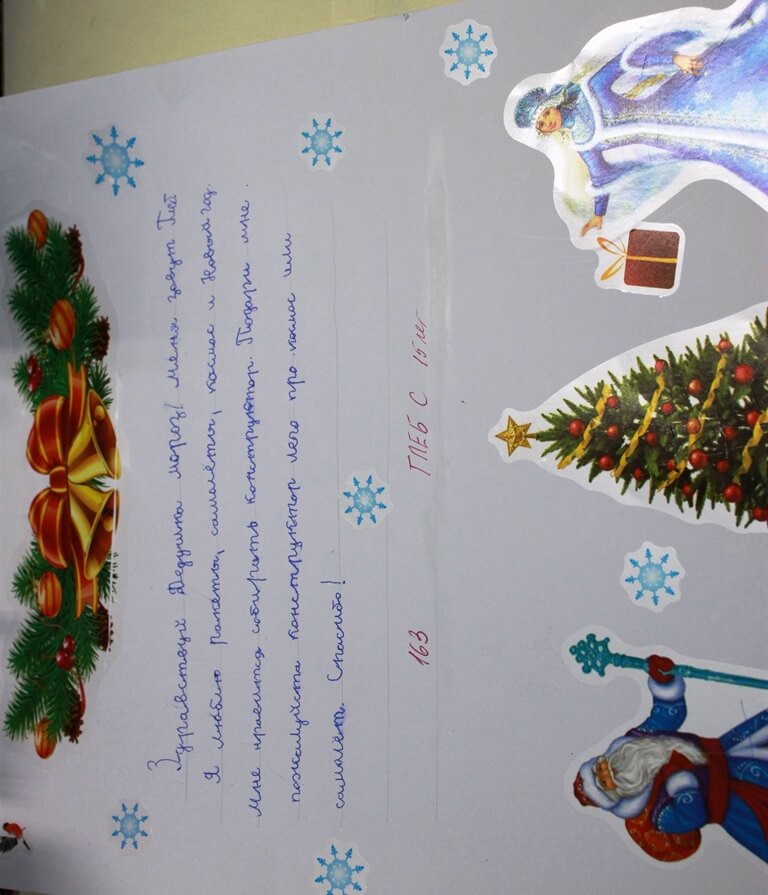 Здравствуй Дедушка мороз! меня зовут Глеб
Я люблю ракеты, самолёты, космос и Новый год.
Мне нравится собирать конструктор. Подари мне
пожалуйста конструктор лего про космос или
самолёт. Спасибо!
163 ГЛЕБ С 15 лет